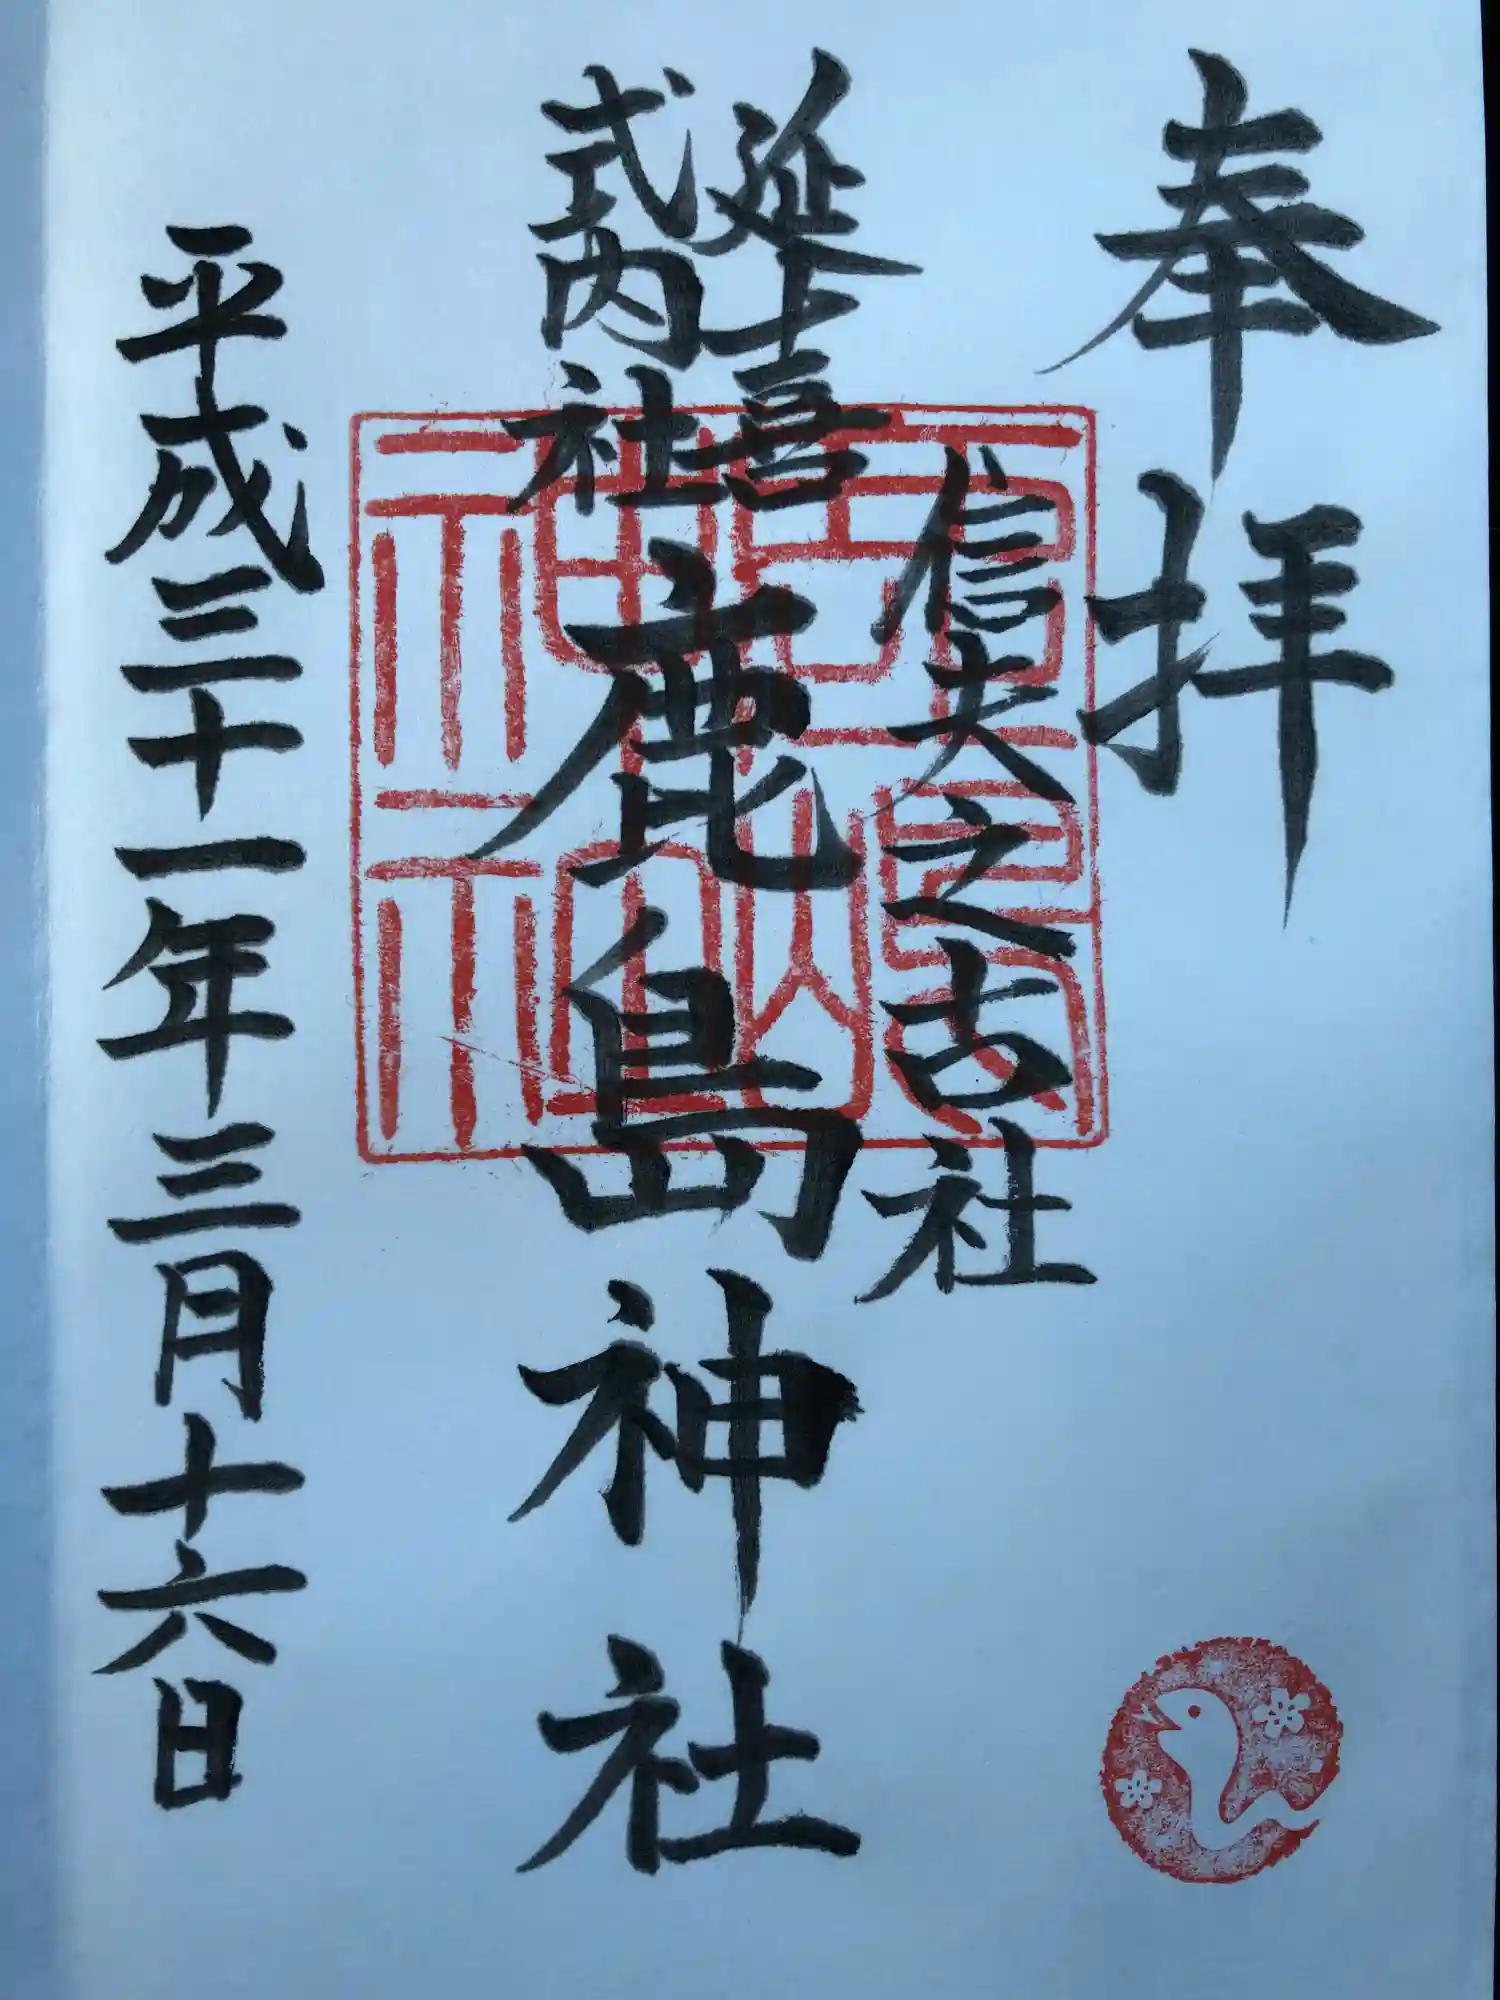 奉拝
信夫之古社
延喜
式内社
鹿島神社
平成三十一年三月十六日